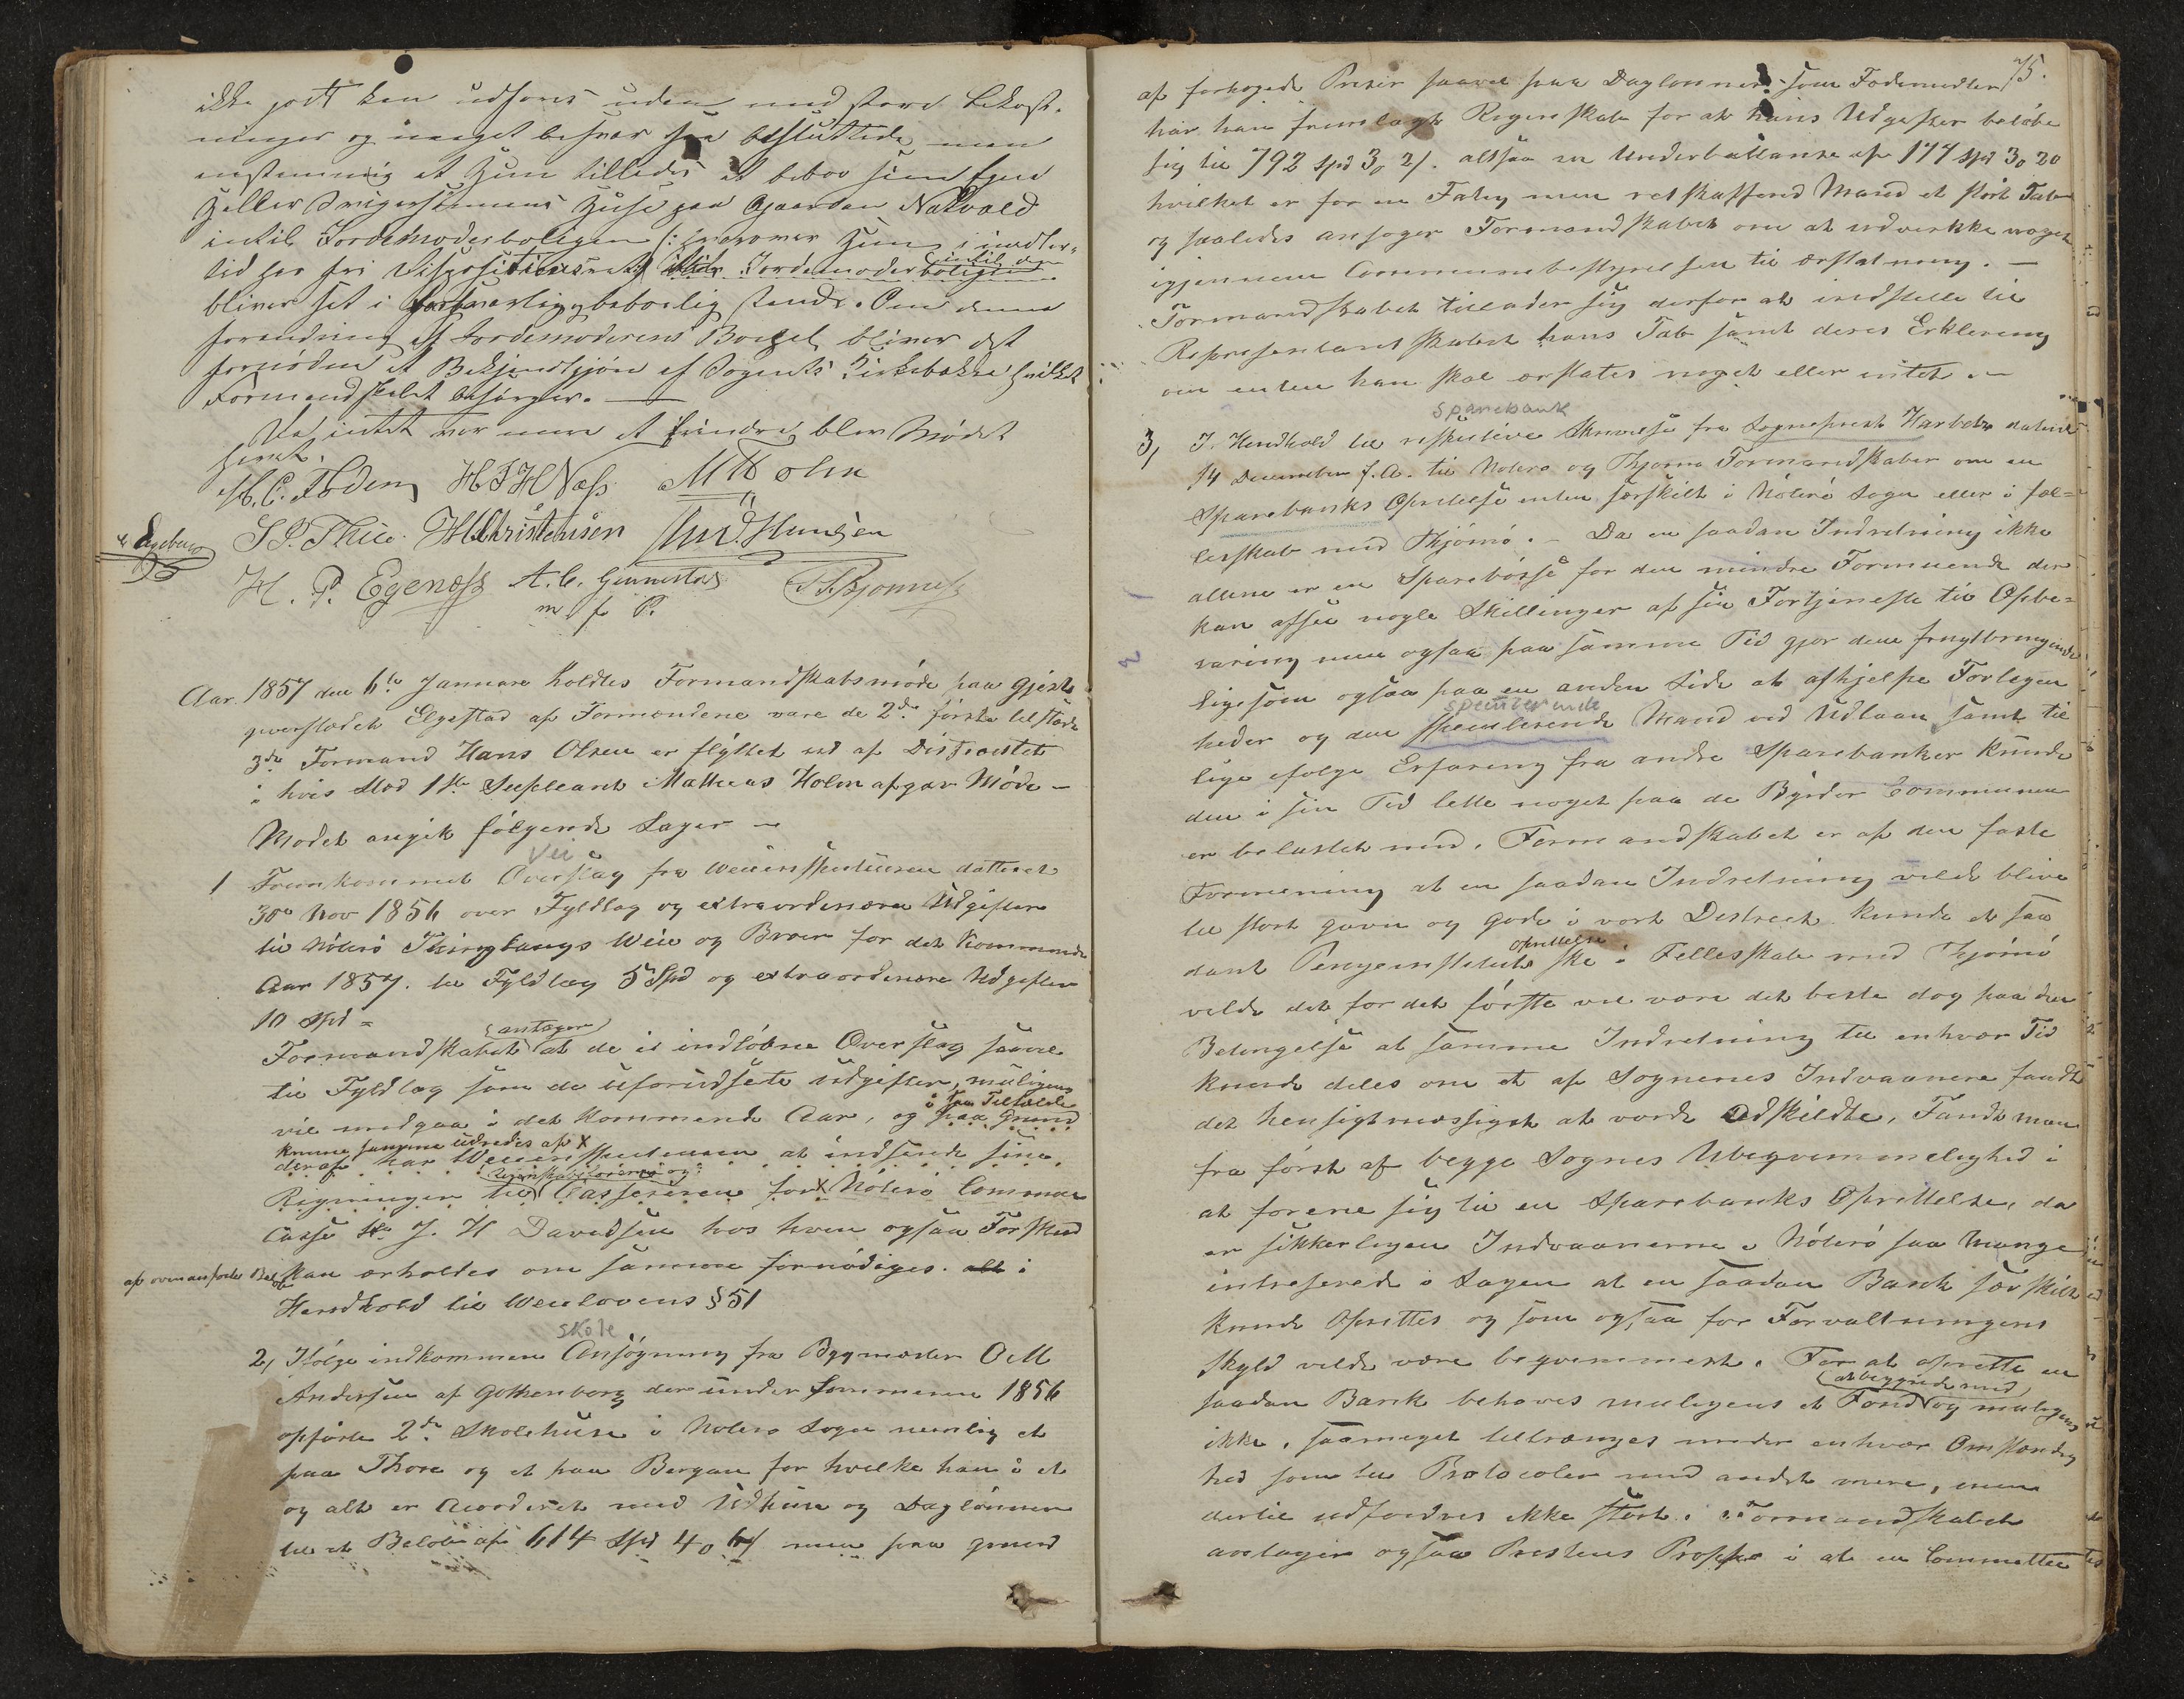 ikke godt kan udføres uden med store bekost-
ninger og meget besvær saa besluttede man
enstemmig at Hun tillades at beboe sin Egen
Heller Svigersønnens Huse paa Gaarden Nalvold
intil Jordemoderboligen (: hvorover Hun i midler-
tid har fri Disposition Jordemoderboligen intil den
bliver sat i forsvarlig beboelig stand. Om denne
forandring af Jordemoderens Bopæl bliver det
fornøden at Bekjendtgjøre af Sognets Kirkebakke hvilket
Formandskabet besørger. —
Da intet var mere at erindre blev Mødet
hævet.
H. C. Foden H F H Næss M Holm
S. P. Thue. H Christensen And. Hansen
H. P. Egenæss A. C. Gunnestad
m f P.
Aar. 1857 den 6te Januar holdtes Formandskabsmøde paa Gjest-
giverstædet Elgestad af Formændene vare de 2de første tilstæde
3die Formand Hans Olsen er flyttet ud af Districtet
i hvis Sted 1ste Supleant Mathias Holm afgav Møde —
Mødet angik følgende Sager —
Vei
1 Fremkommet Overslag fra Weiinspecteuren datteret
30te Nov 1856 over Fyldlag og extraordinære Udgifter
til Nøterø Thinglaugs Weie og Broer for det Kommende
Aar 1857. til Fyldlag 5 Spd og extraordinære Udgifter
10 Spd =
(antager)
Formandskabet at de is indløbne Overslag saavel
til Fyldlag som de uforudseete udgifter, muligens
vil medgaa i det Kommende Aar, og paa Grund
i saa Tilfælde
kunne summa udredes af X
deraf har Weiinspecteuren at indsende sine
Regnskabsførere og
Rigninger til Cassereren for X Nøterø Commune
Casse Hr J. H Davidsen hos hvem ogsaa Forskud
af ovenanførte Beløb kan erholdes om samme fornødiges. alt i
Hendhold til Weilovens § 51
Skole
2, Ifølge indkommen Ansøgning fra Bygmester O M
Andersen af Gothenborg der under Sommeren 1856
opførte 2de Skolehuse i Nøterø Sogn nemlig et
paa Thore og et paa Bergan for hvilke han i et
og alt er Accorderet med Udhuse og Daglønner
til et Beløb af 614 Spd 4 o 6 / men paa grund
75.
af forhøyede Priser saavel paa Daglønner som Fødemidler
har han fremlagt Regenskab for at hans Udgifter beløbe
sig til 792 Spd 3, 2/. altsaa en Underballance af 177 Spd 3, 20
hvilket er for en Fatig men retskaffend Mand et stort Tab
og saaledes ansøger Formandskabet om at udvirkke noget
igjennem Communebestyrelsen til erstatning. —
Formandskabet tillader sig derfor at indstille til
Represantantskabet hans Tab samt deres Erklering
om enten han skal erstates noget eller intet. —
Sparebank
3, I Hendhold til respictive Skrivelse fra Sogneprest Harbitz dateret
14 December f.A. til Nøterø og Thjømø Formandskaber om en
Sparebanks Oprettelse enten særskilt i Nøterø Sogn eller i fæl-
lesskab med Thjømø. — Da en saadan Indretning ikke
allene er en Sparebøsse for den mindre Formuende der
kan afsee nogle Skillinger af sin Fortjeneste til Opbe-
varing men ogsaa paa samme Tid gjør dem frugtbringende
ligesom ogsaa paa en anden Side at afhjelpe Forlegen
spekulerende
heder og den speculerende Mand ved Udlaan samt til
lige efølge Erfaring fra andre Sparebanker kunde
den i sin Tid lette noget paa de Byrder Communen
er belastet med. Formandskabet er af den faste
Formening at en saadan Indretning vilde blive
til stort gavn og gode i vort Destrect. kunde et saa
oprettelse
dant Pengeinstetut ske i Fellesskab med Thjømø
vilde det for det første vel være det beste dog paa den
Betingelse at samme Indretning til enhver Tid
kunde deles om et af Sognenes Indvaanere fandt
det hensigtmæssigst at vorde Adskildte. Fandt man
fra først af begge Sognes Ubeqvemmelighed i
at forene sig til en Sparebanks Oprettelse, da
er sikkerligen Indvaanerne i Nøterø saa Mange
intreserede i Sagen at en saadan Bank særskilt
kunde Oprettes og som ogsaa for Forvaltningens
Skyld vilde være beqvemmest. For at oprette en
(at begynde med)
saadan Bank behøves muligens et Fond og muligens
ikke, saameget tiltrænges under enhver Omstændig
hed som til Protocoler med andet mere, men
dertil udfordres ikke stort. Formandskabet
antager ogsaa Prestens Propps i at en Committee